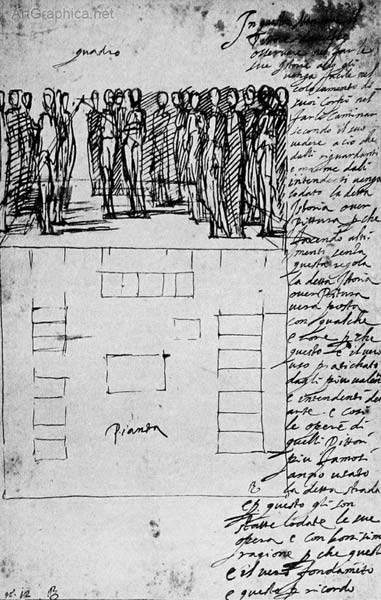 ArtGraphica.net
quadro
In questa
osservare nel far le
sue Istorie
facile nel
collocamento de
suoi Corpi nel
farli Caminar
secondo il suo
vedere a cio che
dalli riguardanti
e massime dali
intendenti venga
lodato la detta
Istoria over
pittura p che
facendo altri
menti senza
questa regola
la detta Istoria
over Pittura
vera posta
con qualche
erore p che
questo è il vero
uso praticato
dagli piu valenti
e intendenti del
arte e cosi
le opere di
quelli Pittori
piu famosi
anno usato
la detta strada
e p questo gli son
state lodate le sue
opera e con bonissima
ragione p che questo
e il vero fondamento
e questo p ricordo
Pianta